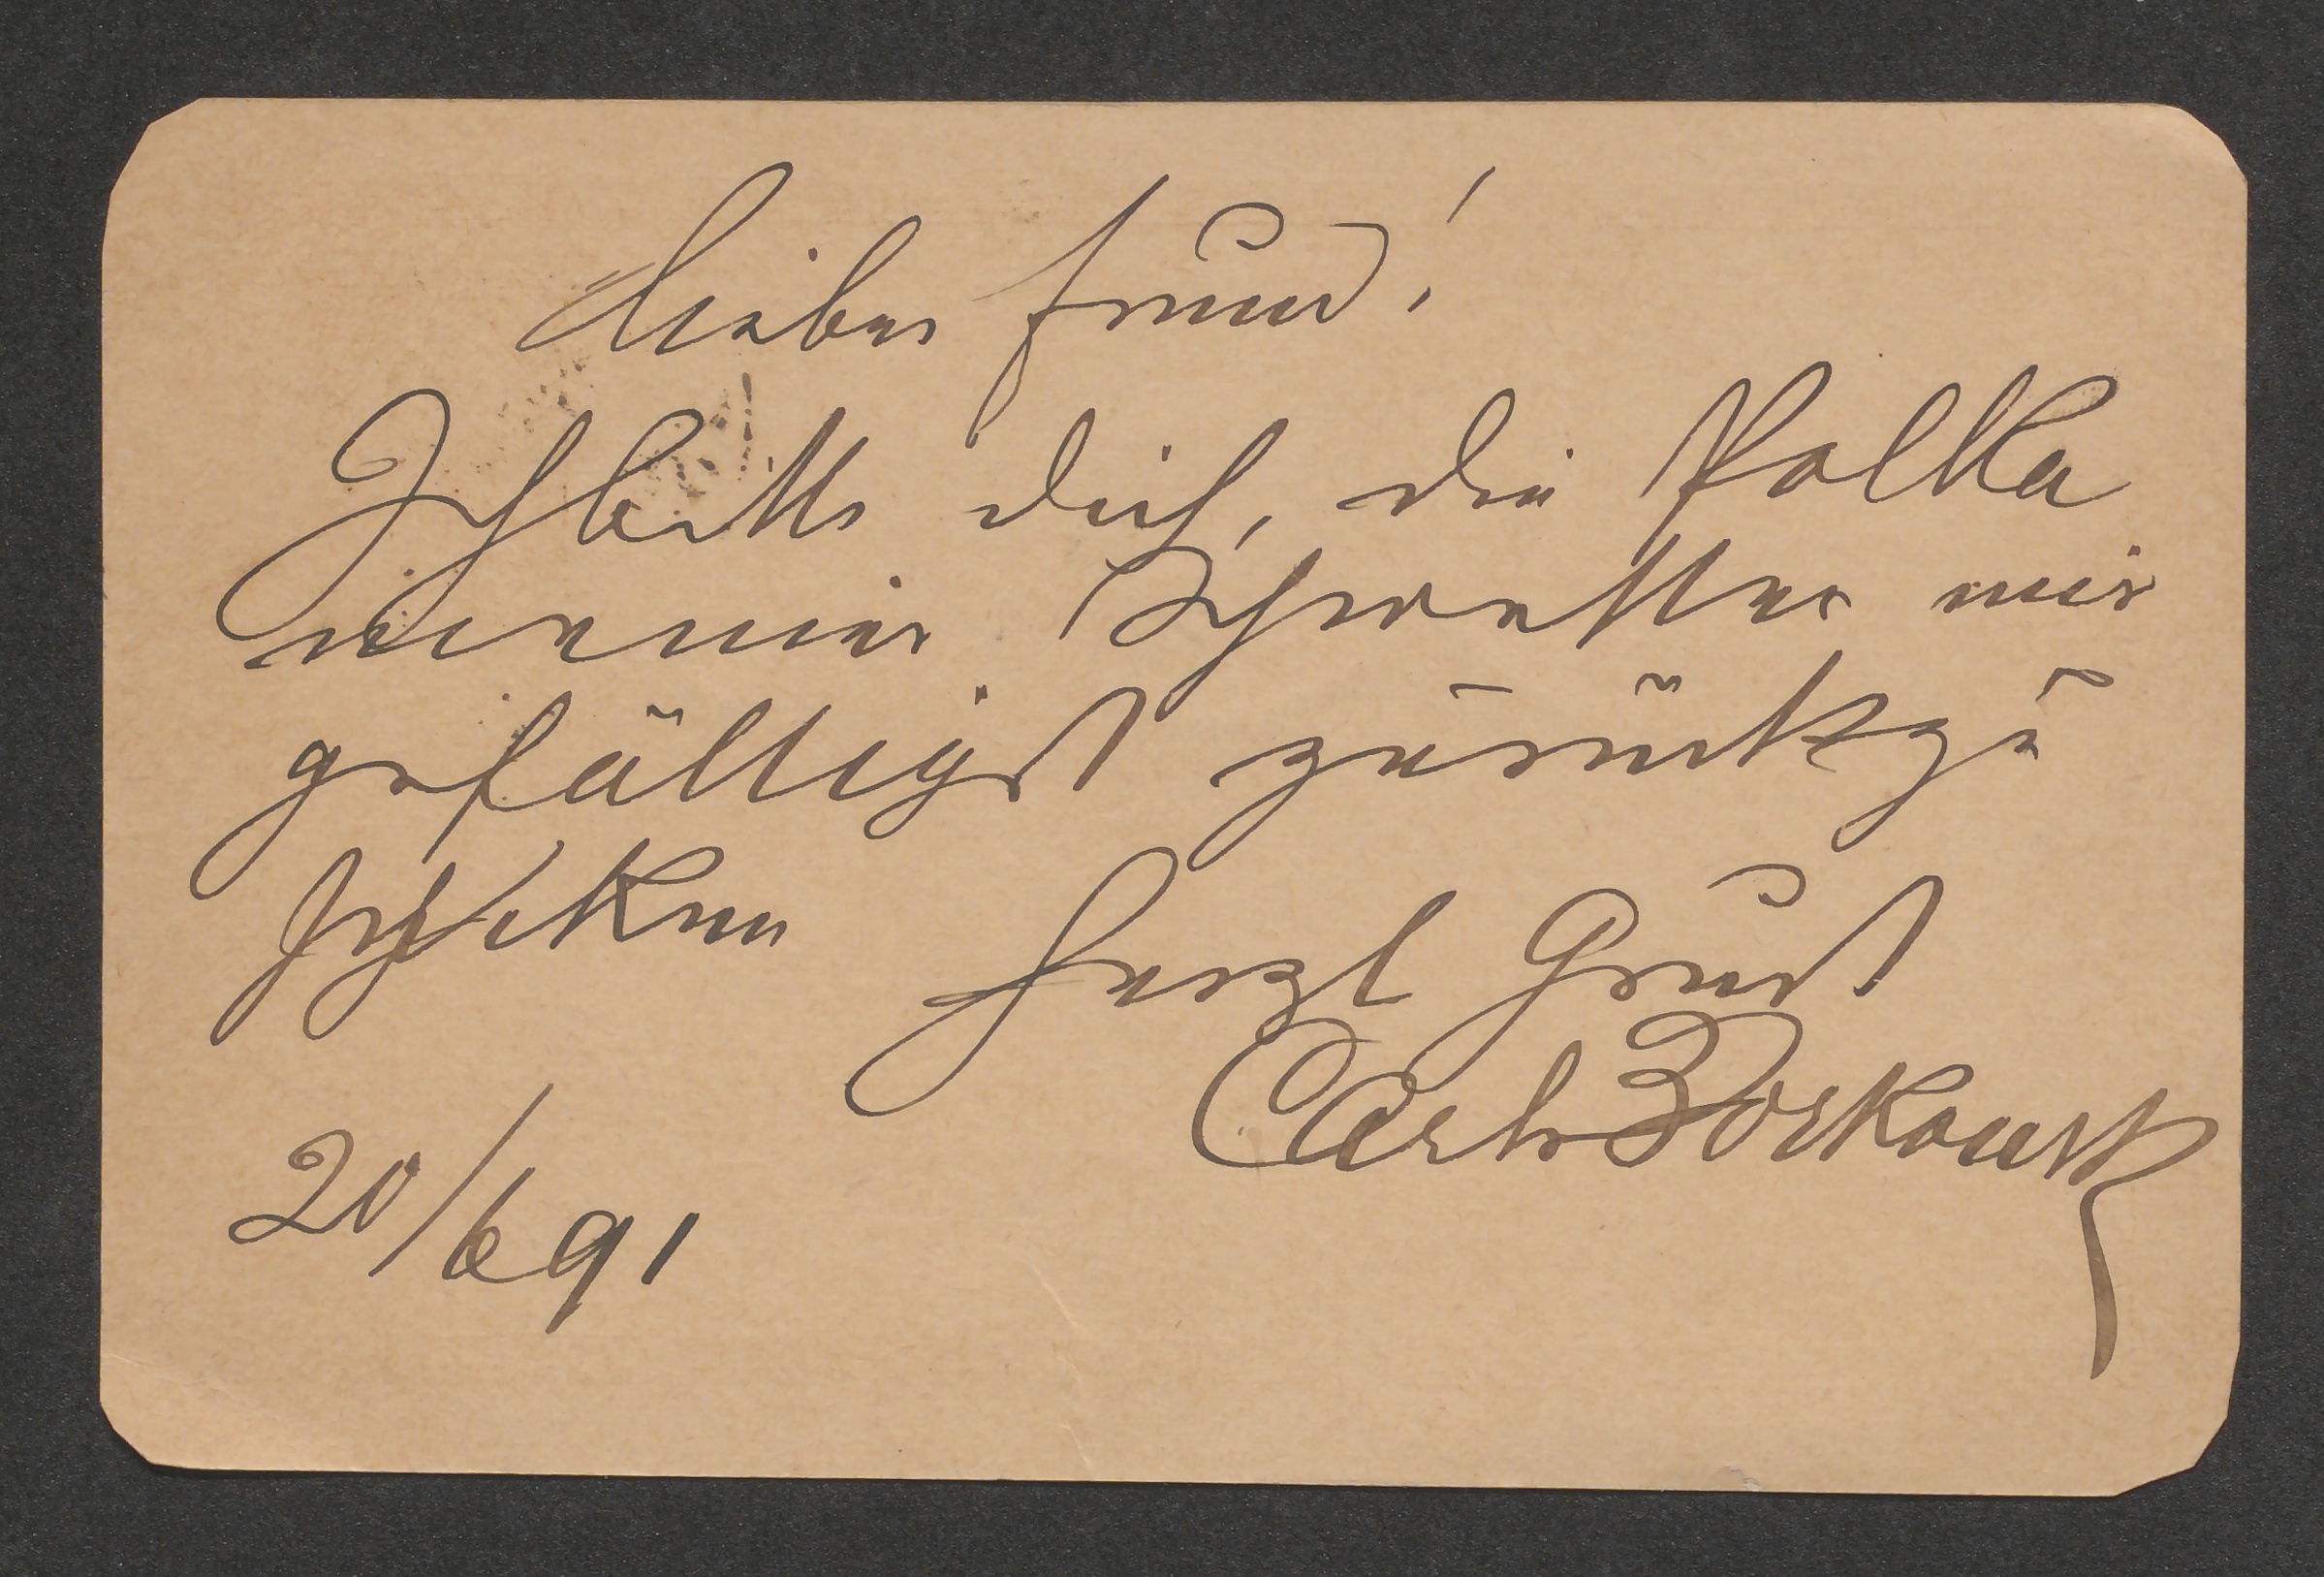 Lieber Freund!
Ich bitte Dich, die Polka
meiner Schwester mir
gefälligst zurückzu
schicken
Herzl Gruß
Carlo Borkowsk
20/6 91